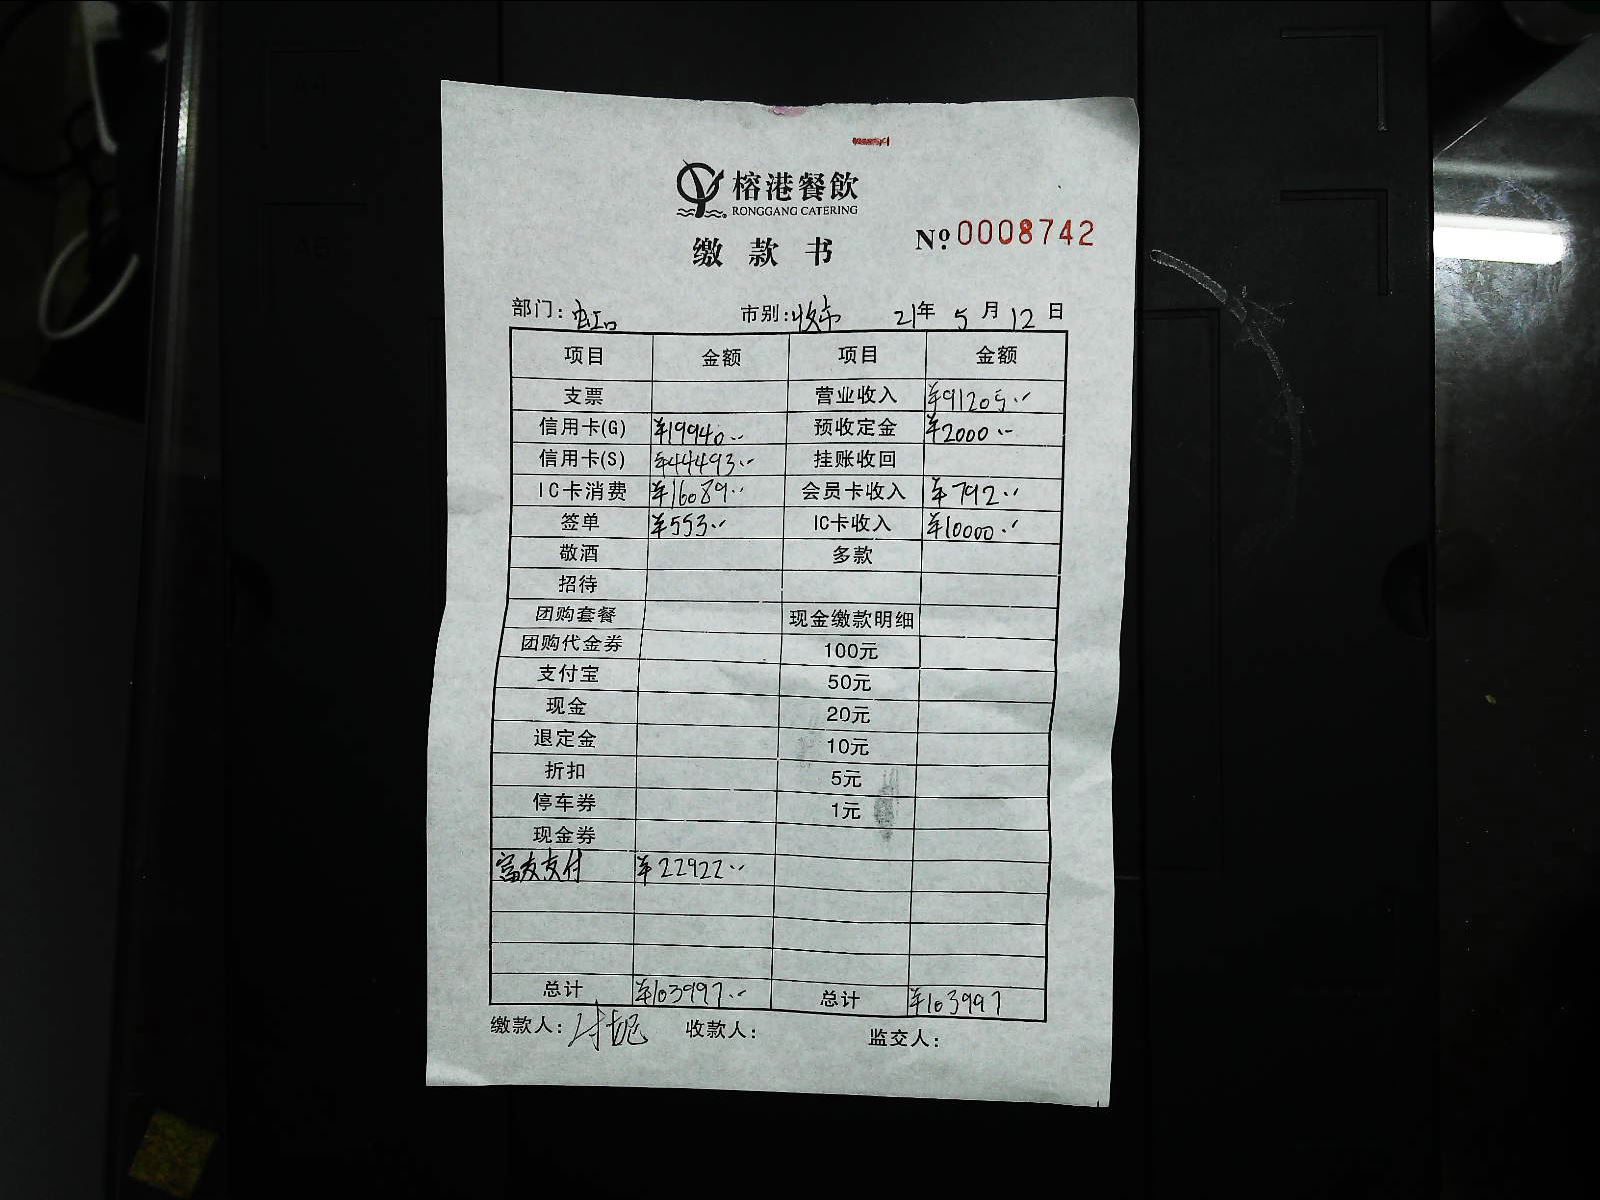 榕港餐飲
RONGGANG CATERING
缴款书 No.0008742
部门:虹口 市别:收市 21年5月12日
项目 金额 项目 金额
支票 营业收入 ¥91205.--
信用卡(G) ¥19940.-- 预收定金 ¥2000.--
信用卡(S) ¥44493.-- 挂账收回
IC卡消费 ¥16089.-- 会员卡收入 ¥792.--
签单 ¥553.-- IC卡收入 ¥10000.--
敬酒 多款
招待
团购套餐 现金缴款明细
团购代金券 100元
支付宝 50元
现金 20元
退定金 10元
折扣 5元
停车券 1元
现金券
富友支付 ¥22922.--
总计 ¥103997.-- 总计 ¥103997
缴款人: 收款人: 监交人: